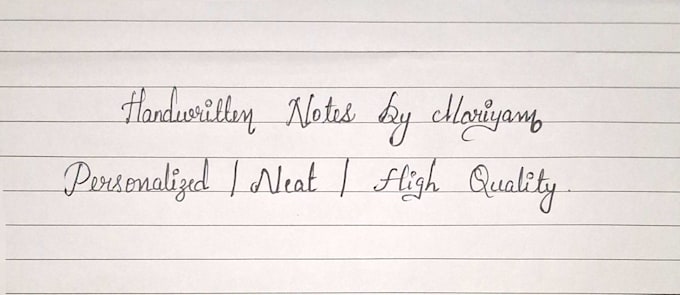 Handwritten Notes by Mariyam
Personalized | Neat | High Quality.